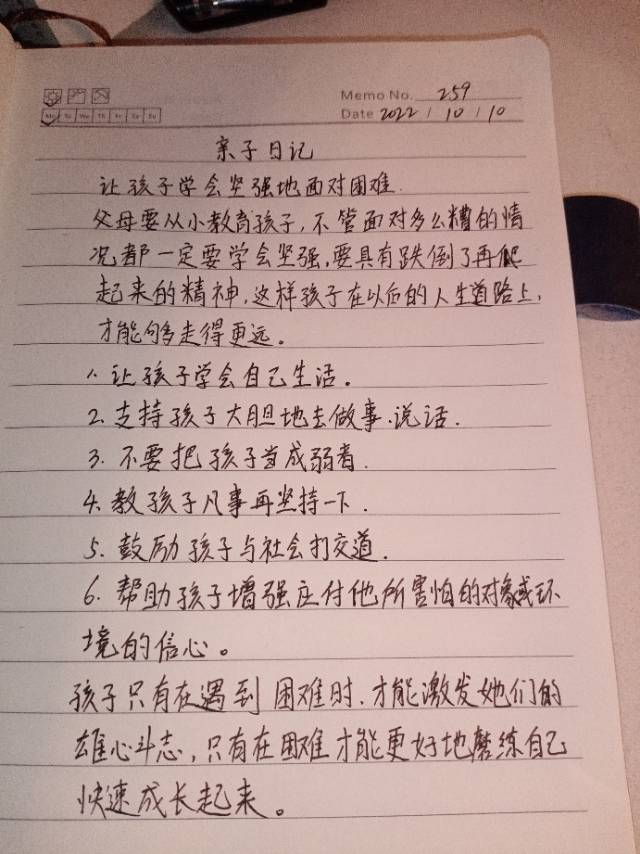 Memo No. 259
Mo Tu We Th Fr Sa Su
Date 2022 / 10 / 10
亲子日记
让孩子学会坚强地面对困难.
父母要从小教育孩子,不管面对多么糟的情
况都一定要学会坚强,要具有跌倒了再爬
起来的精神,这样孩子在以后的人生道路上,
才能够走得更远。
1. 让孩子学会自己生活。
2. 支持孩子大胆地去做事.说话.
3. 不要把孩子当成弱者.
4. 教孩子凡事再坚持一下.
5. 鼓励孩子与社会打交道.
6. 帮助孩子增强应付他所害怕的对象或环
境的信心。
孩子只有在遇到困难时.才能激发她们的
雄心斗志,只有在困难才能更好地磨练自己
快速成长起来。